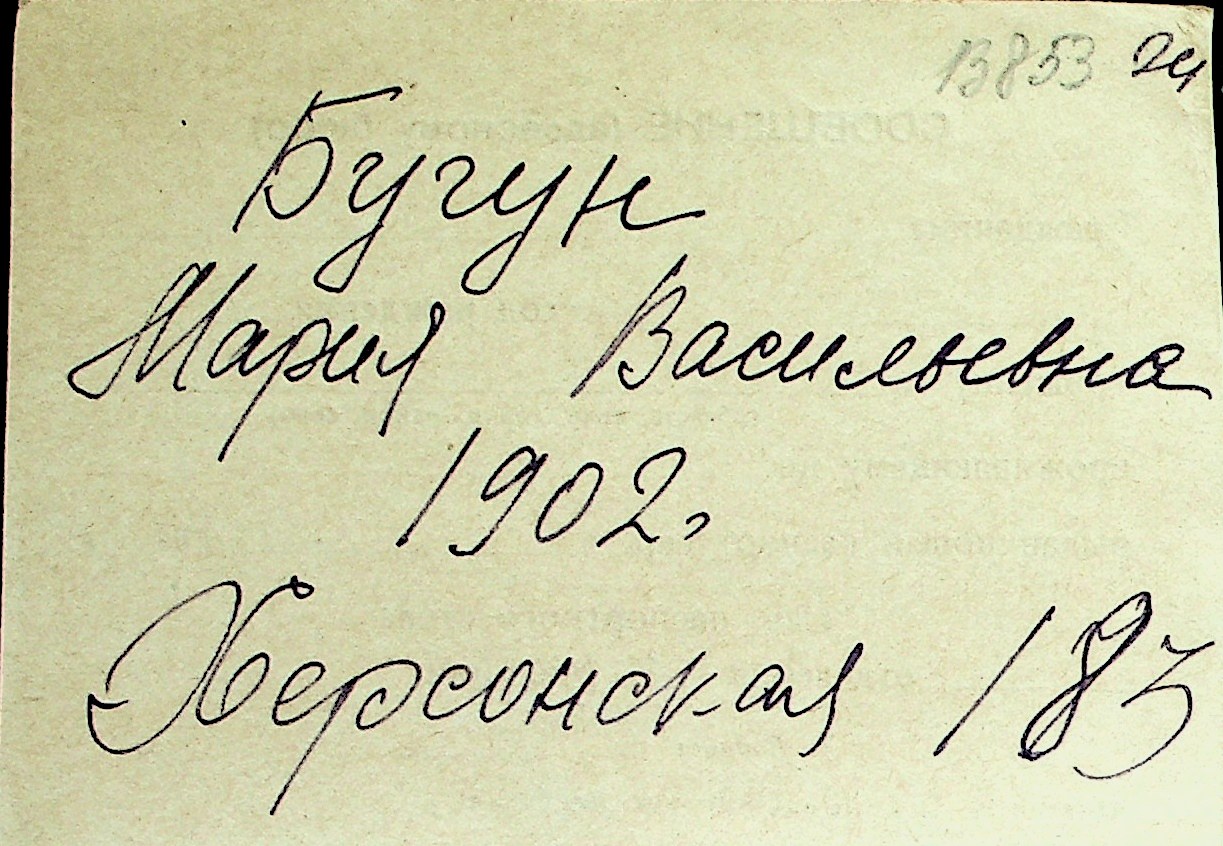 13853 24
Бугун
Мария Васильевна
1902г
Херсонская 183